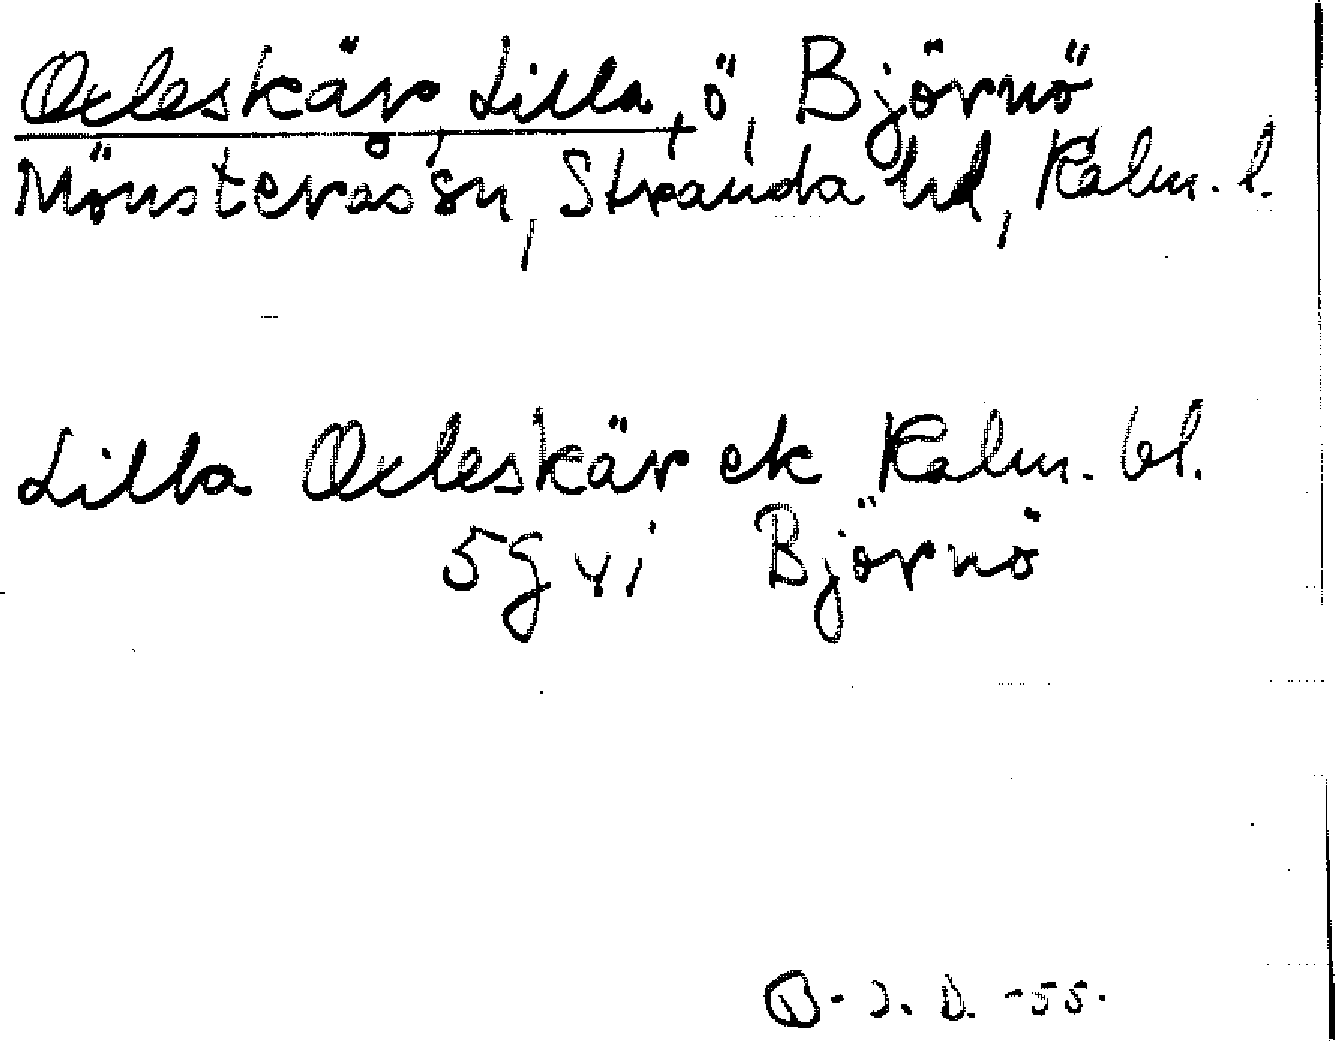 Oxleskär, Lilla, ö, Björnö
Mönsterås sn, Stranda hd, Kalm. l.
Lilla Oxleskär ek Kalm. bl.
5g vi Björnö
B-J. D. -55.